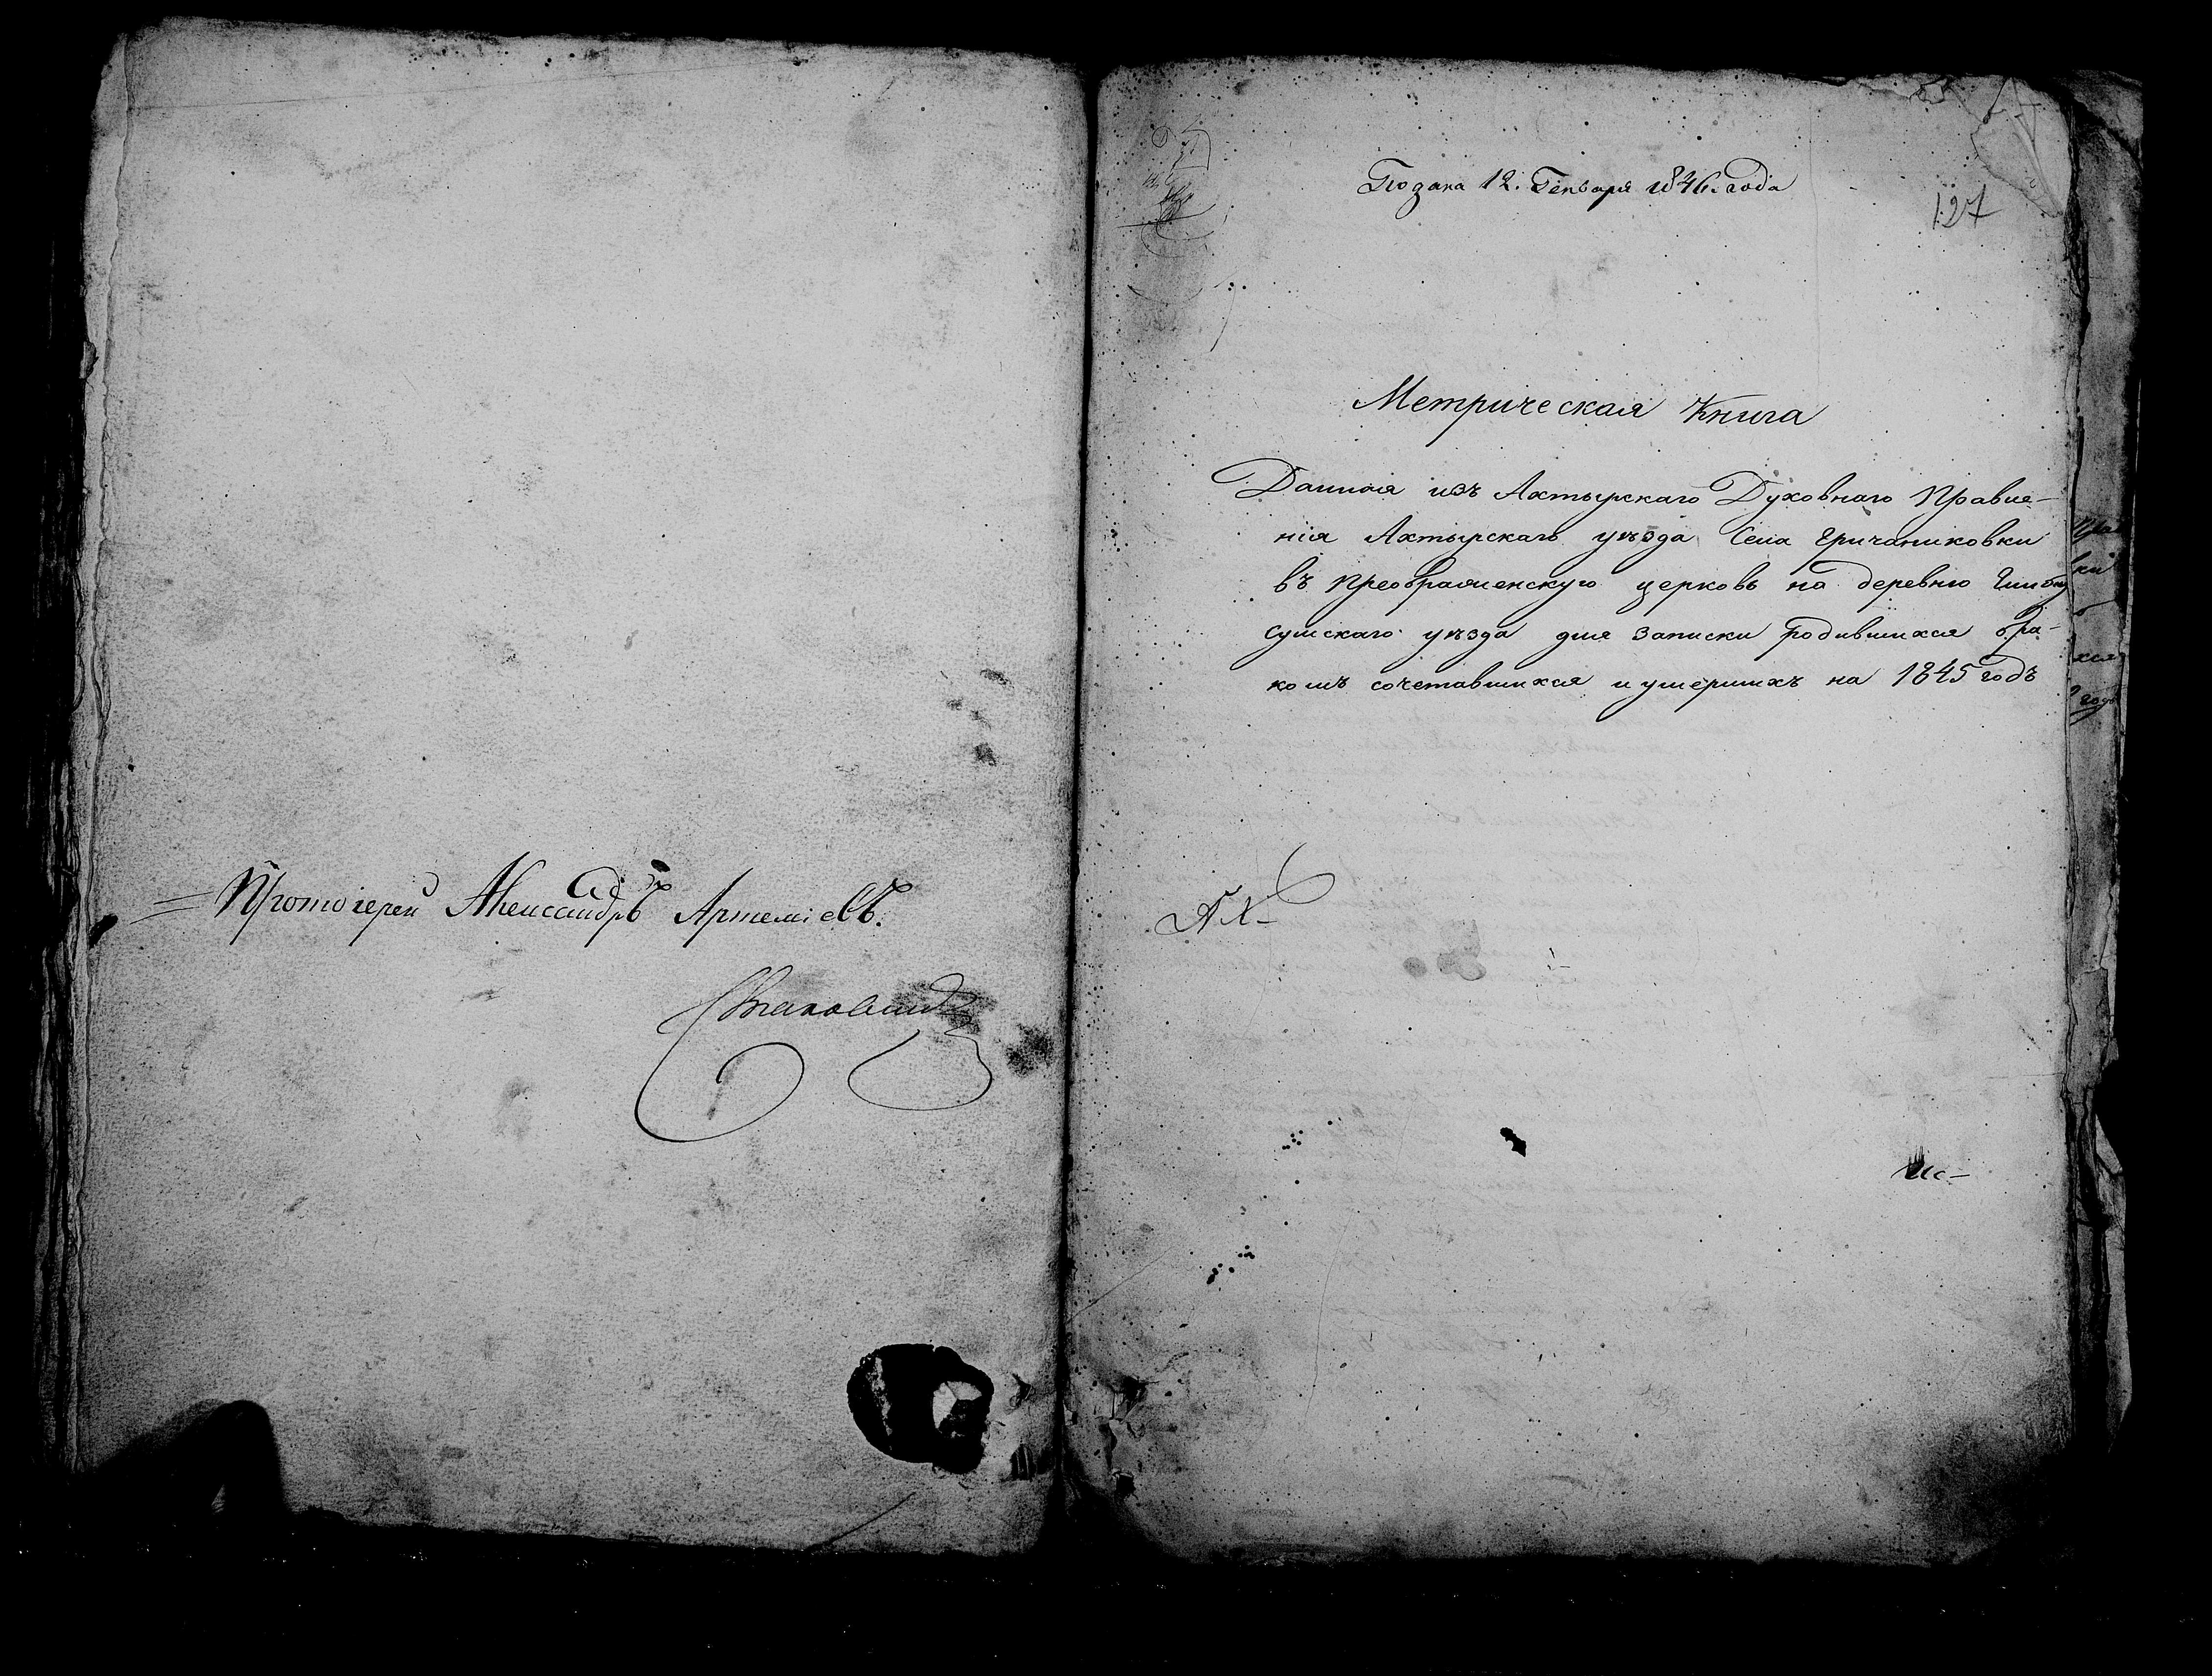 Протоіерей Александръ Артеміевъ.
Подана 12. Генваря 1846. года
127
Метрическая Книга
Данная изъ Ахтырскаго Духовнаго Правле-
нія Ахтырскаго уѣзда Села Гричаниковки
въ Преображенскую церковь на деревню
Сумскаго уѣзда для записки родившихся бра-
комъ сочетавшихся и умершихъ на 1845 годъ
Ах-
Ис-